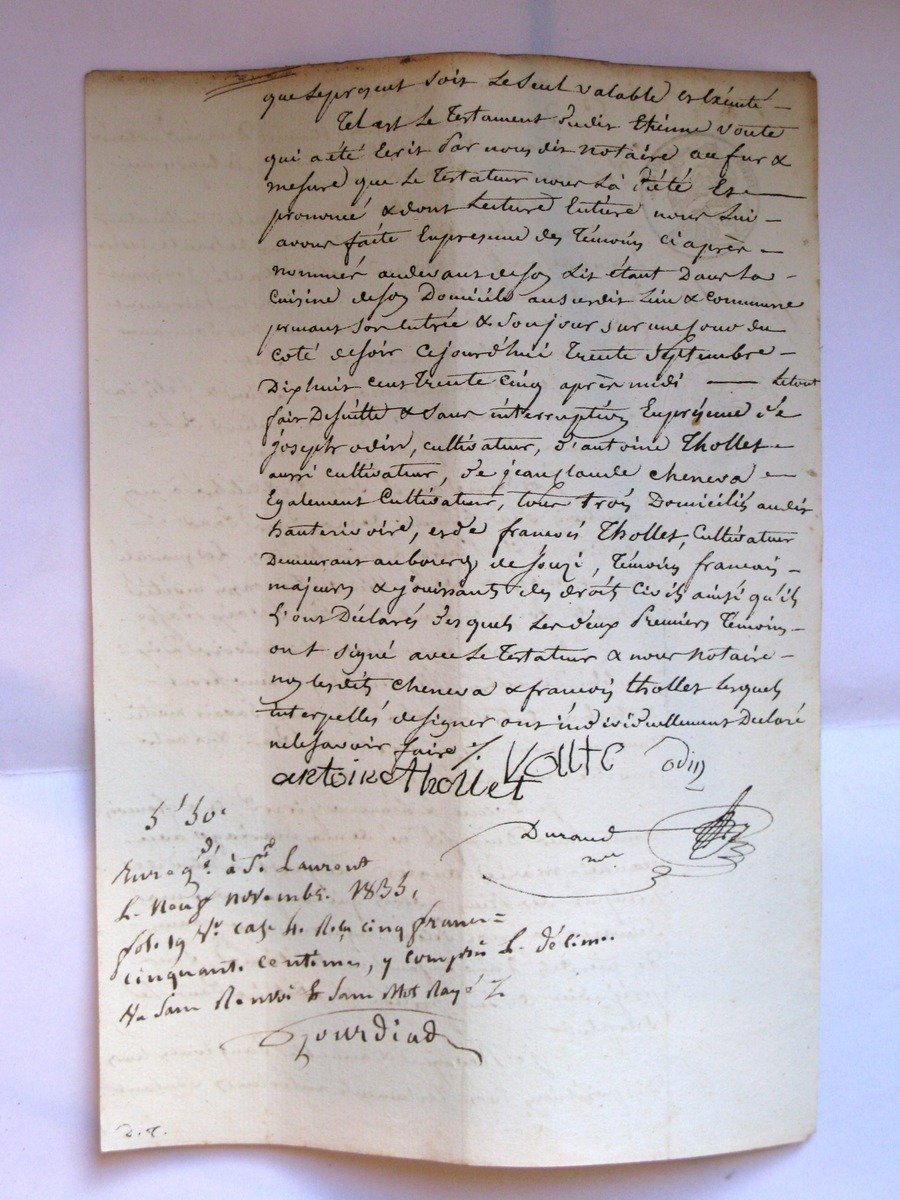 que Le present soit Le Seul valable et Exécuté –
Tel est Le Testament dudit Etienne Voute
qui a été Ecrit Par nous dit notaire au fur &
mesure que Le Testateur nous L'à dicté Et
prononcé & dont Lecture Entiere nous Lui –
avons faite En presence des Témoins ci après –
nommés au devant de son Lit étant Dans La –
Cuisine de son Domicile au susdit Lieu & commune
prenant son Entrée & son jour sur une cour du
coté de soir Cejourd'hui Trente Septembre –
Dixhuit cent Trente Cinq après midi — Le tout
fait De suitte & sans interruption En présence de
joseph odin, cultivateur, d'antoine Thollet –
aussi cultivateur, de jean Claude cheneva –
Egalement Cultivateur, tous trois Domiciliés audit
hauterivoire, et de francois Thollet, Cultivateur
Demeurant au bourg de Souzi, Témoins francais –
majeurs & jouissants des droits Civils ainsi qu'ils
L'ont Déclarés desquels Les deux Premiers Témoins –
ont signé avec Le Testateur & nous Notaire –
non Lesdits cheneva & francois thollet Lesquels
interpellés de signer ont individuellement Declaré
ne le savoir faire
antoine thollet Voute odin
5f 50c
Durand
nre
Enregé à St Laurent
Le Neuf novembre 1835,
fol. 19 Vo case 4. Reçu cinq francs
cinquante centimes, y compris Le décime.
Sans Renvoi Et Sans Mot Rayé